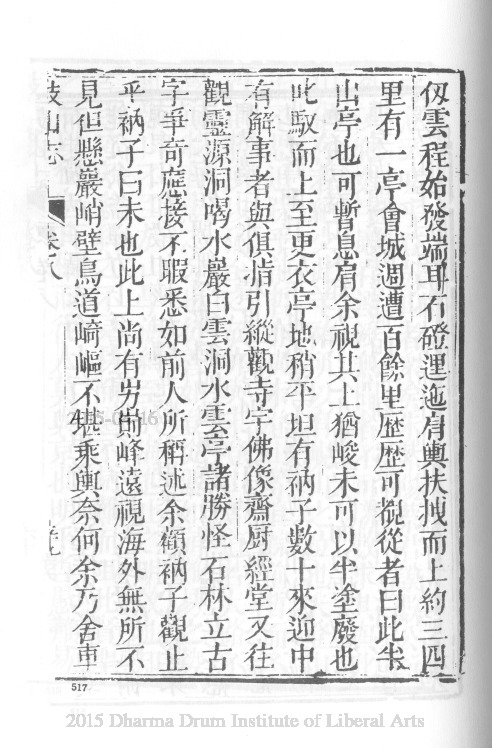 仭雲程始發端耳石磴逥迤肩輿扶拽而上約三四
里有一亭會城週遭百餘里歷歷可覩從者曰此半
山亭也可暫息肩余視其上猶峻未可以半塗廢也
叱馭而上至更衣亭地稍平坦有衲子數十來迎中
有解事者與俱指引縱觀寺宇佛像齋厨經堂又往
觀靈源洞喝水巖白雲洞水雲亭諸勝怪石林立古
字爭奇應接不暇悉如前人所稱述余顧衲子觀止
乎衲子曰未也此上尚有屴崱峰遠視海外無所不
見但懸巖峭壁鳥道崎嶇不堪乘輿奈何余乃舍車
鼓山志 卷之八
517
2015 Dharma Drum Institute of Liberal Arts